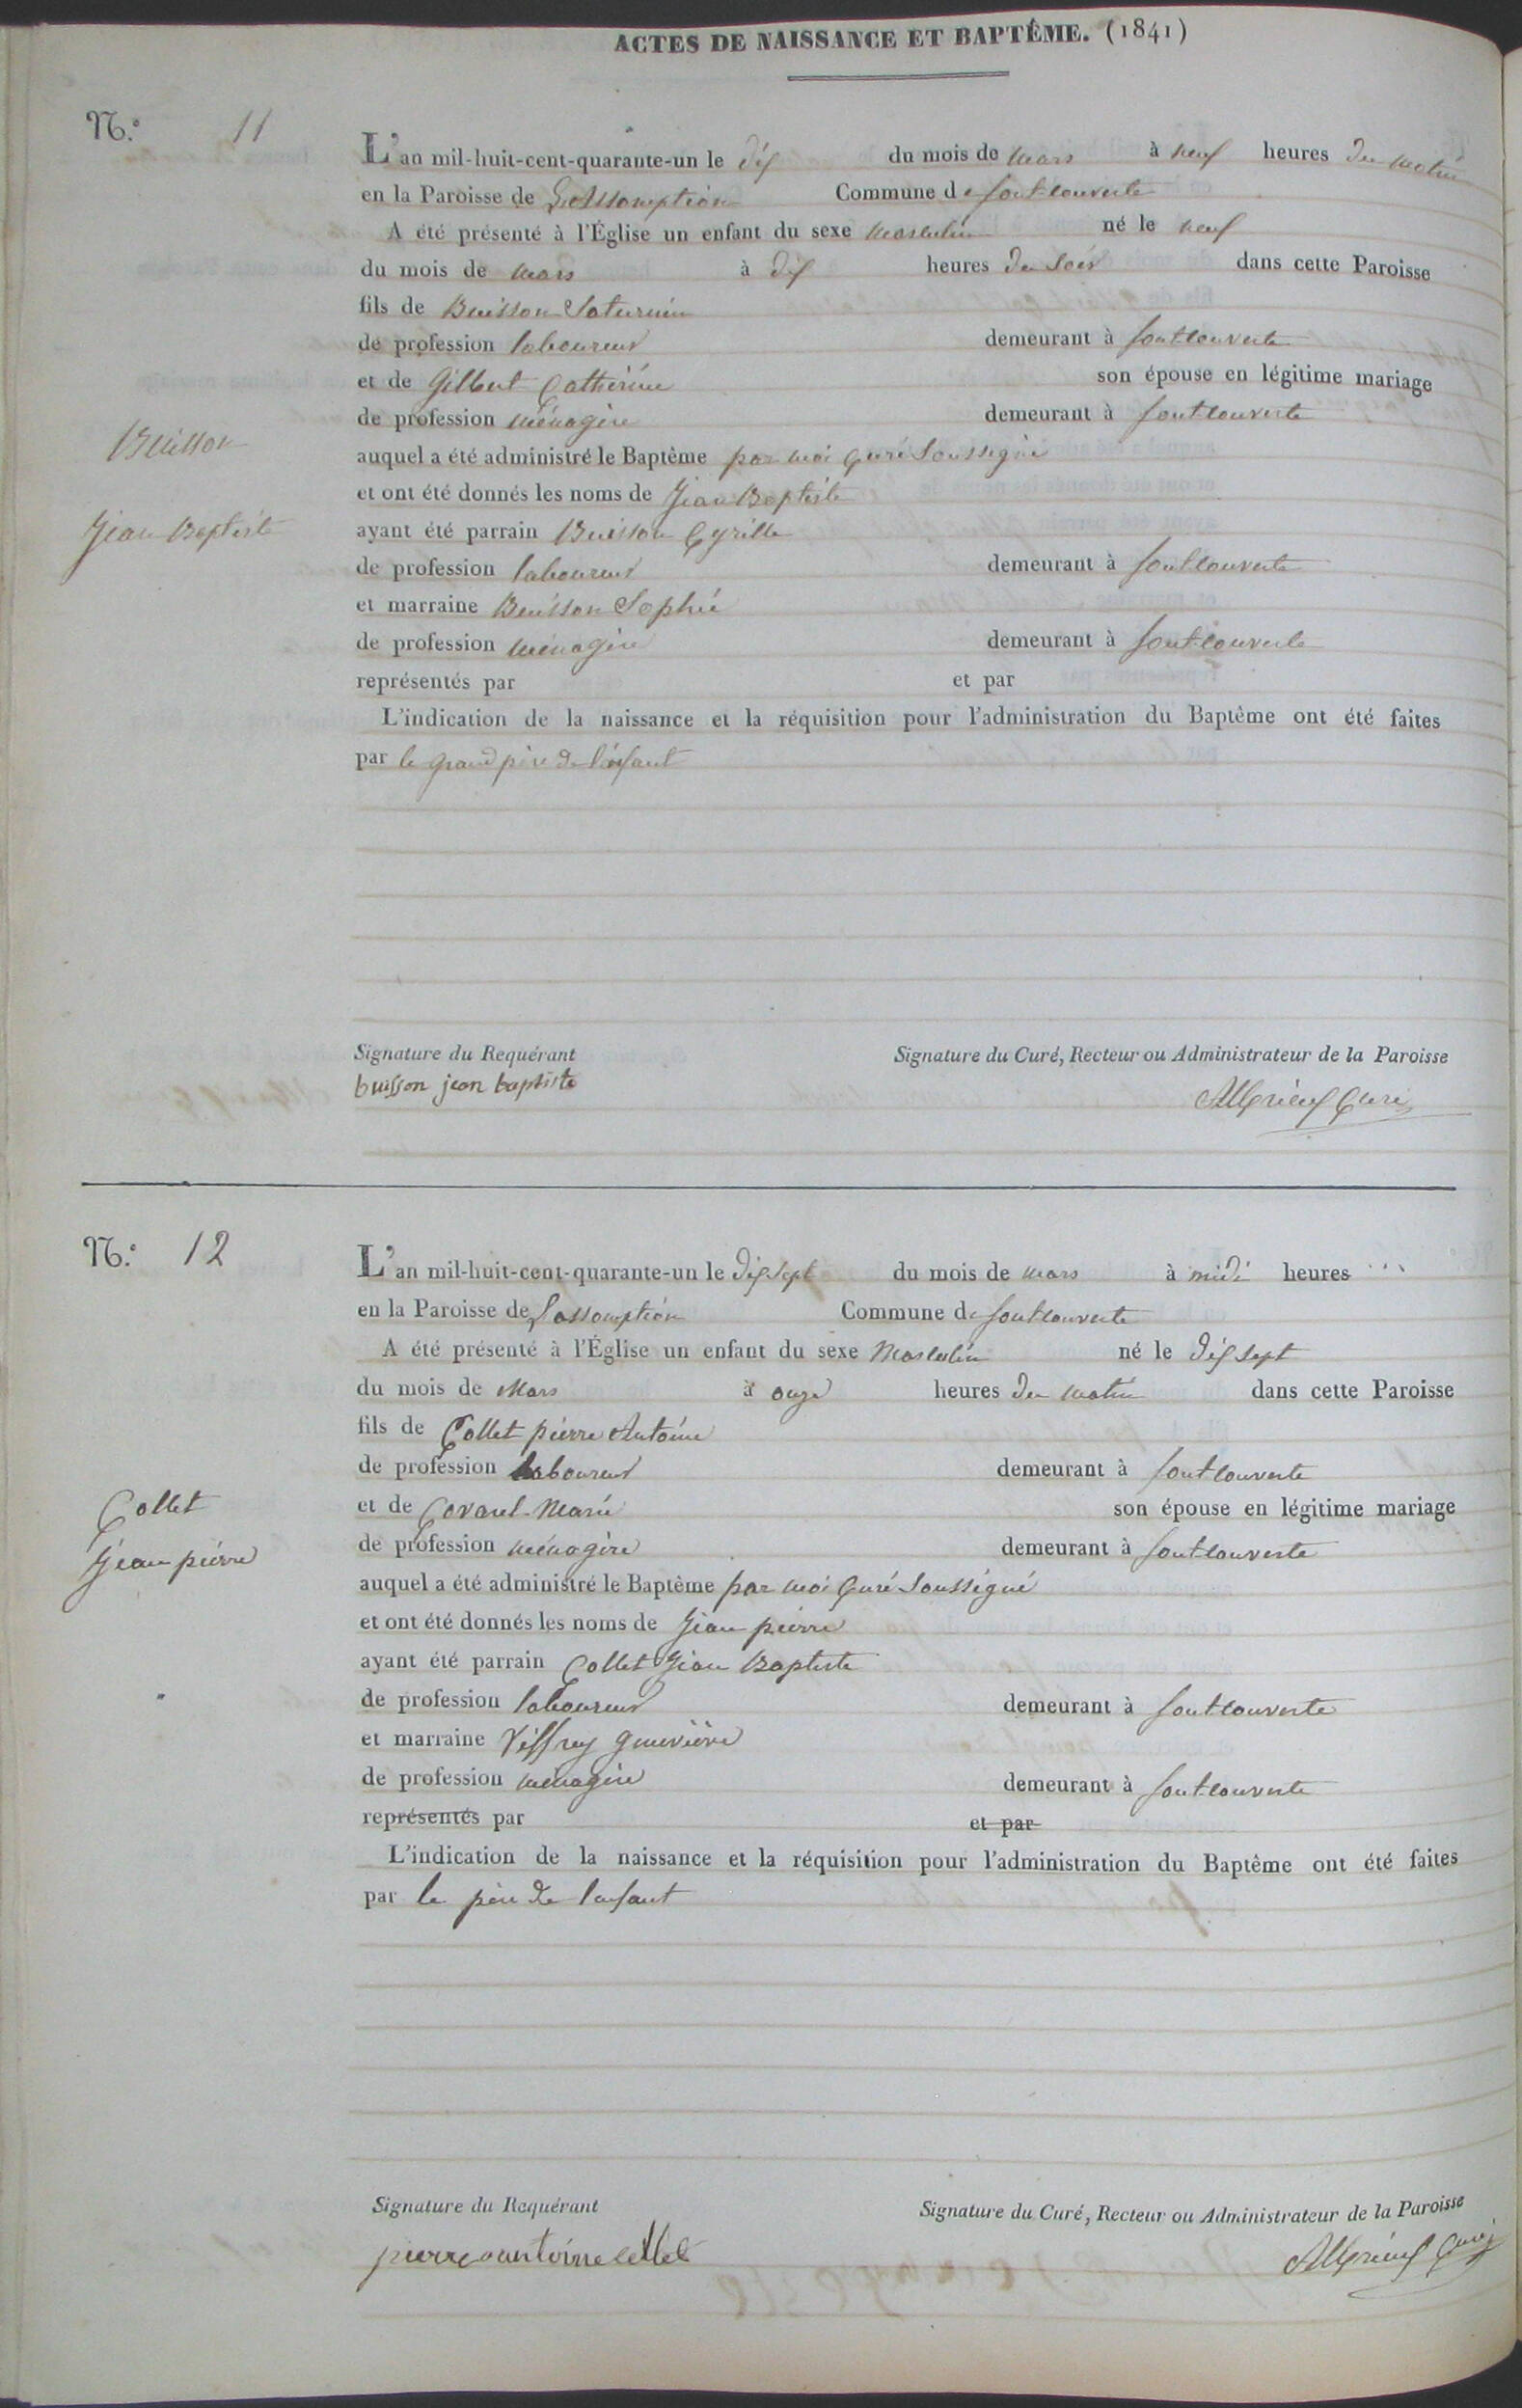 ACTES DE NAISSANCE ET BAPTÊME. (1841)
N.º 11
L'an mil-huit-cent-quarante-un le dix du mois de mars à neuf heures du matin
en la Paroisse de L'assomption Commune de fontcouverte
A été présenté à l'Église un enfant du sexe masculin né le neuf
du mois de mars à dix heures du soir dans cette Paroisse
fils de Buisson Saturnin
de profession laboureur demeurant à fontcouverte
et de Gilbert Catherine son épouse en légitime mariage
de profession ménagère demeurant à fontcouverte
Buisson
auquel a été administré le Baptême par moi Curé Soussigné
et ont été donnés les noms de Jean Baptiste
Jean Baptiste
ayant été parrain Buisson Cyrille
de profession laboureur demeurant à fontcouverte
et marraine Buisson Sophie
de profession ménagère demeurant à fontcouverte
représentés par et par
L'indication de la naissance et la réquisition pour l'administration du Baptême ont été faites
par le grand père de l'enfant
Signature du Requérant Signature du Curé, Recteur ou Administrateur de la Paroisse
buisson jean baptiste Curé
N.º 12
L'an mil-huit-cent-quarante-un le dix sept du mois de mars à midi heures
en la Paroisse de L'assomption Commune de fontcouverte
A été présenté à l'Église un enfant du sexe Masculin né le dix sept
du mois de Mars à onze heures du matin dans cette Paroisse
fils de Collet pierre Antoine
de profession laboureur demeurant à fontcouverte
Collet
et de Covarel Marie son épouse en légitime mariage
Jean pierre
de profession ménagère demeurant à fontcouverte
auquel a été administré le Baptême par moi Curé Soussigné
et ont été donnés les noms de Jean pierre
ayant été parrain Collet Jean Baptiste
de profession laboureur demeurant à fontcouverte
et marraine Viffrey Geneviève
de profession ménagère demeurant à fontcouverte
représentés par et par
L'indication de la naissance et la réquisition pour l'administration du Baptême ont été faites
par le père de l'enfant
Signature du Requérant Signature du Curé, Recteur ou Administrateur de la Paroisse
pierre antoine collet Curé